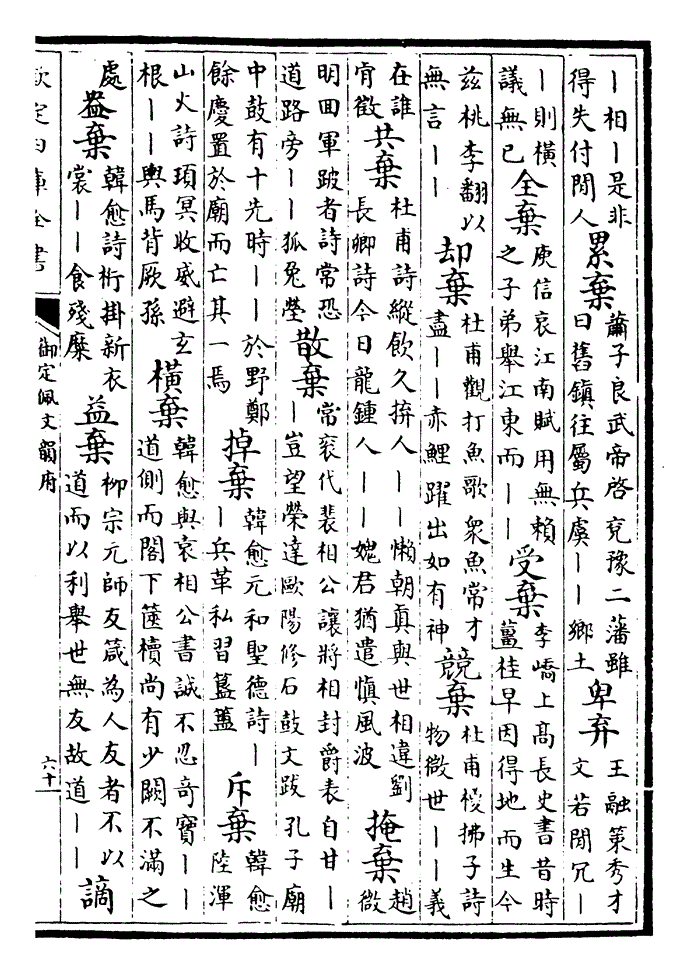 ｜相｜是非得失付閒人累棄蕭子良武帝啓兗豫二藩雖曰舊鎮往屬兵虞｜｜鄉土卑弃王融策秀才文若閒冗｜
｜則橫議無已全棄庾信哀江南賦用無賴之子弟舉江東而｜｜受棄李嶠上髙長史書昔時薑桂早因得地而生今
兹桃李翻以無言｜｜却棄杜甫觀打魚歌衆魚常才盡｜｜赤鯉躍出如有神競棄杜甫椶拂子詩物微世｜｜義
在誰肯徵共棄杜甫詩縱飲久拚人｜｜懶朝真與世相違劉長卿詩今日龍鍾人｜｜媿君猶遣慎風波掩棄趙微
明田軍跛者詩常恐道路旁｜｜狐兔塋散棄常衮代裴相公讓將相封爵表自甘｜｜豈望榮達歐陽修石鼓文跋孔子廟
中鼓有十先時｜｜於野鄭餘慶置於廟而亡其一焉掉棄韓愈元和聖德詩｜｜兵革私習簋簠斥棄韓愈陸渾
山火詩頊冥收威避玄根｜｜輿馬背厥孫橫棄韓愈與袁相公書誠不忍奇寶｜｜道側而閣下篋櫝尚有少闕不滿之
處盎棄韓愈詩桁掛新衣裳｜｜食殘糜益棄柳宗元師友箴為人友者不以道而以利舉世無友故道｜｜謫
欽定四庫全書
御定佩文韻府
六十